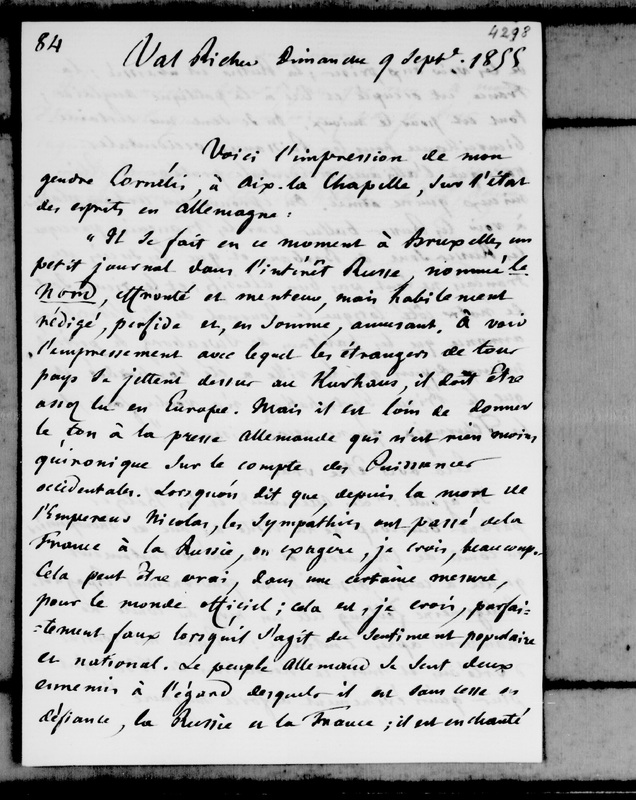 84
4298
Val Richer Dimanche 9 Septe. 1855
Voici l'impression de mon
gendre Cornélis, à Aix-la Chapelle, sur l'état
des esprits en Allemagne :
" Il se fait en ce moment à Bruxelles, un
petit journal dans l'intérêt Russe, nommé le
Nord, effronté et menteur, mais habilement
rédigé, perfide et, en somme, amusant. à voir
l'empressement avec lequel les étrangers de tout
pays se jettent dessus au Kurhaus, il doit être
assez lu en Europe. Mais il est loin de donner
le ton à la presse Allemande qui n'est rien moins
qu'ironique sur le compte des Puissances
occidentales. Lorsqu'on dit que, depuis la mort de
l'Empereur Nicolas, les sympathies ont passé de la
France à la Russie, on exagère, je crois, beaucoup.
Cela peut être vrai, dans une certaine mesure,
pour le monde officiel ; cela est, je crois, parfai=
=tement faux lorsqu'il s'agit du sentiment populaire
et national. Le peuple Allemand se sent deux
ennemis à l'égard desquels il est sans cesse en
défiance, la Russie et la France ; il est enchanté